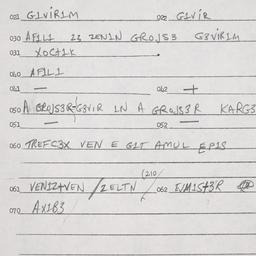 021 G1VIR1M 022 G1VIR
030 AF1L1 23 ZEN1N GROJS3 G3VIR1M
031 XOCT1K
040 AF1L1
041 — 042 +
050 A GROJS3R G3VIR 1N A GROJS3R KARG3
051 — 052 —
060 TREFC3X VEN E G1T AMUL EP1S
(210/
061 VEN1Z+VEN /ZELTN/ 062
070 AX1B3